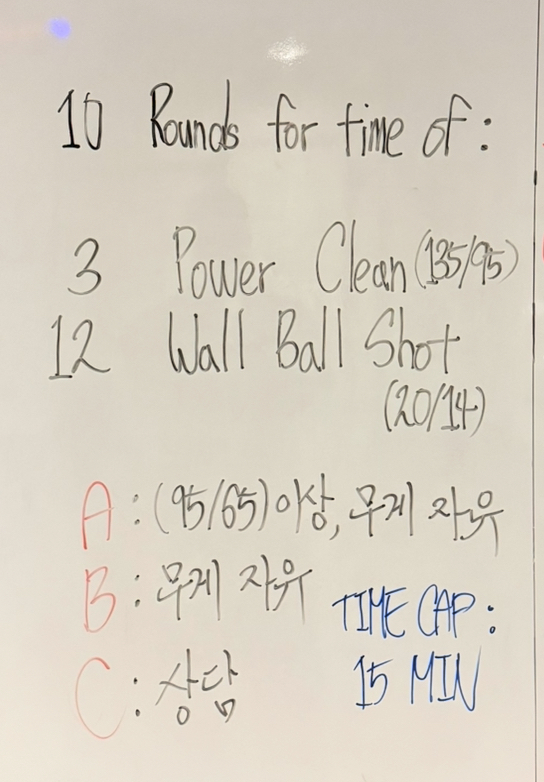 10 Rounds for time of:
3 Power Clean (135/95)
12 Wall Ball Shot
(20/14)
A: (95/65) 이상, 무게 자유
B: 무게 자유
C: 상담
TIME CAP:
15 MIN